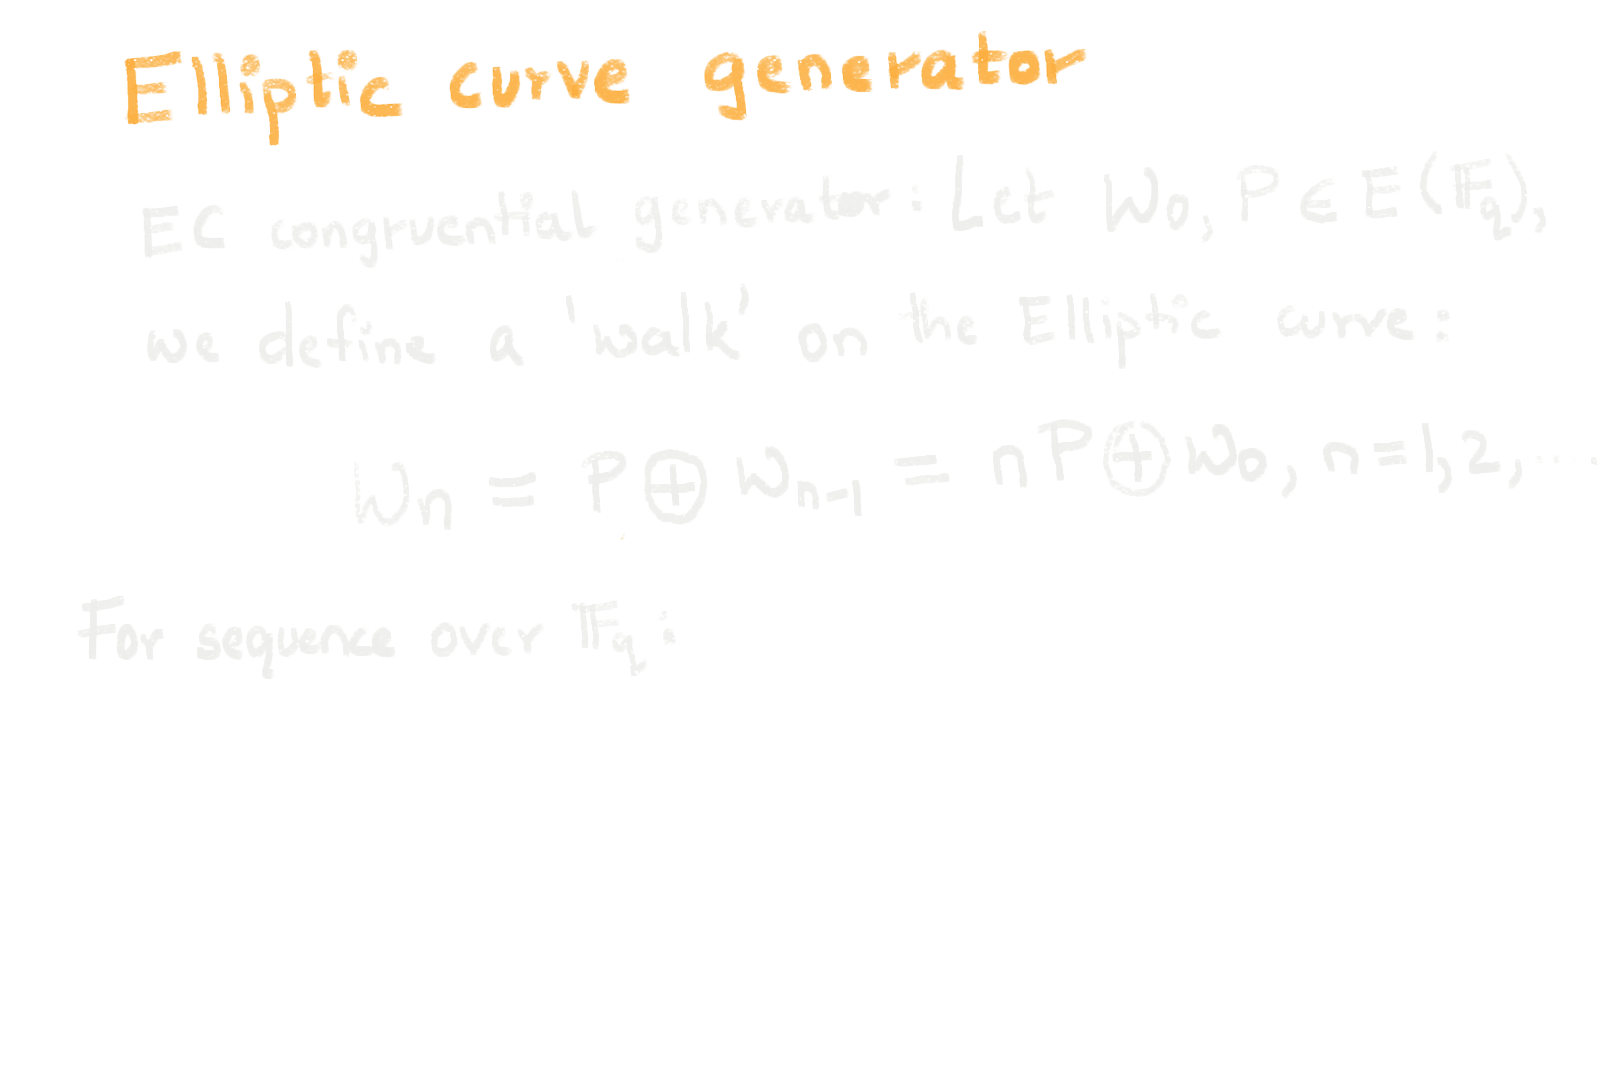 Elliptic curve generator
EC congruential generator: Let W₀, P ∈ E(𝔽q),
we define a 'walk' on the Elliptic curve:
Wn = P ⊕ Wn-1 = nP ⊕ W₀, n=1,2,....
For sequence over 𝔽q: